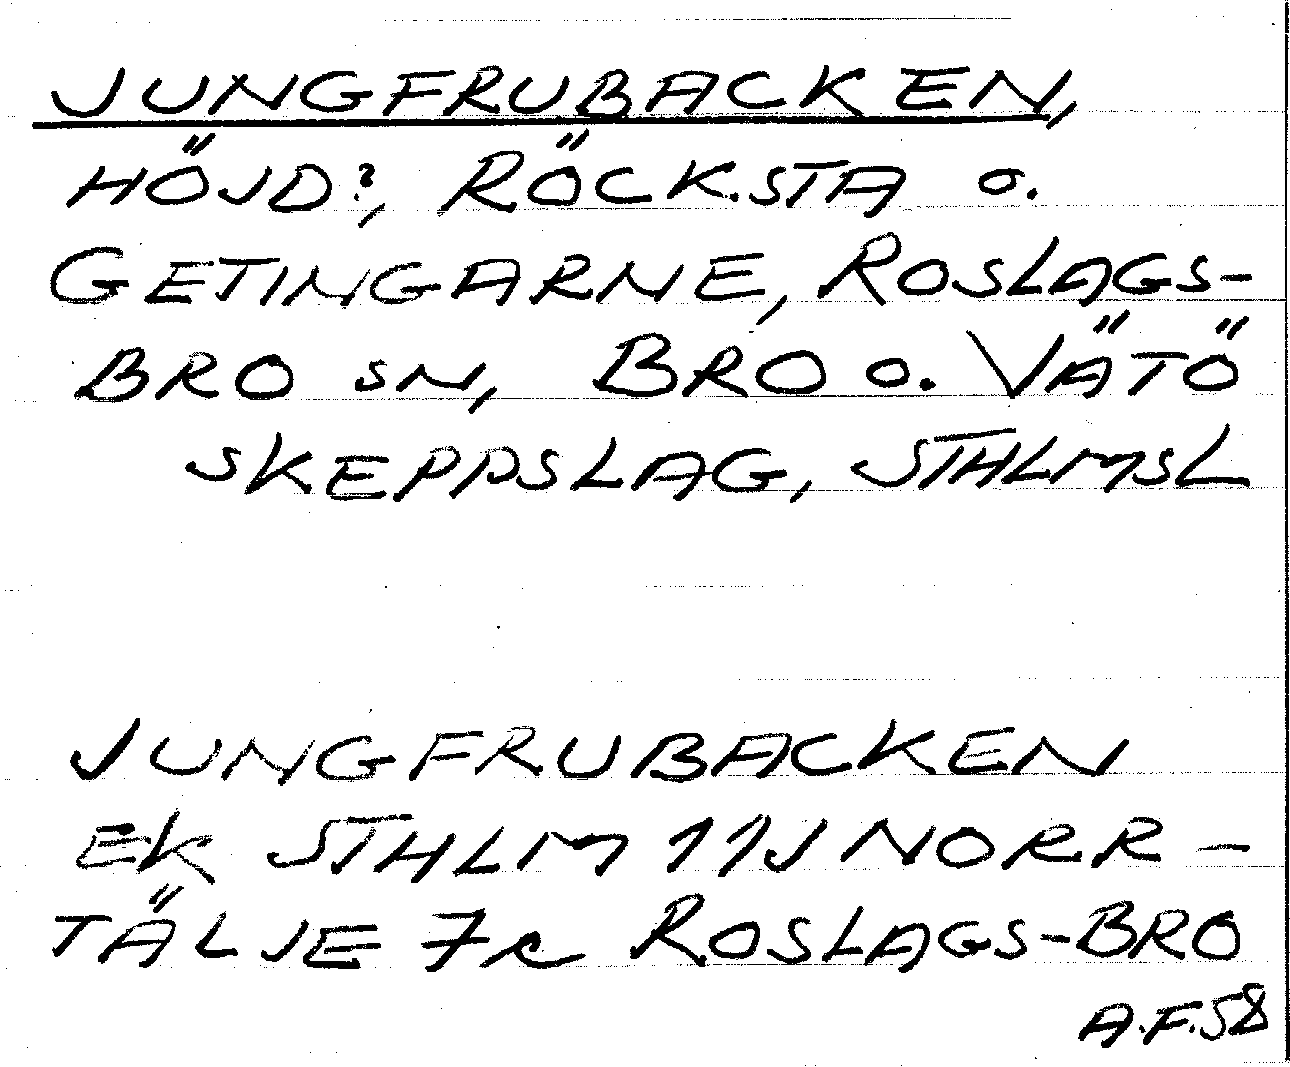 JUNGFRUBACKEN,
HÖJD?, RÖCK.STA O.
GETINGARNE, ROSLAGS-
BRO SN, BRO O. VÄTÖ
SKEPPSLAG, STHLMSL
JUNGFRUBACKEN
EK STHLM 11J NORR-
TÄLJE 7c ROSLAGS-BRO
A.F.58